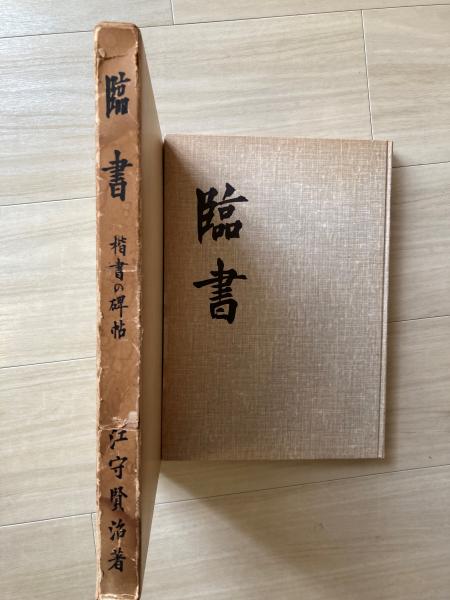 臨書
楷書の碑帖
江守賢治著
臨書